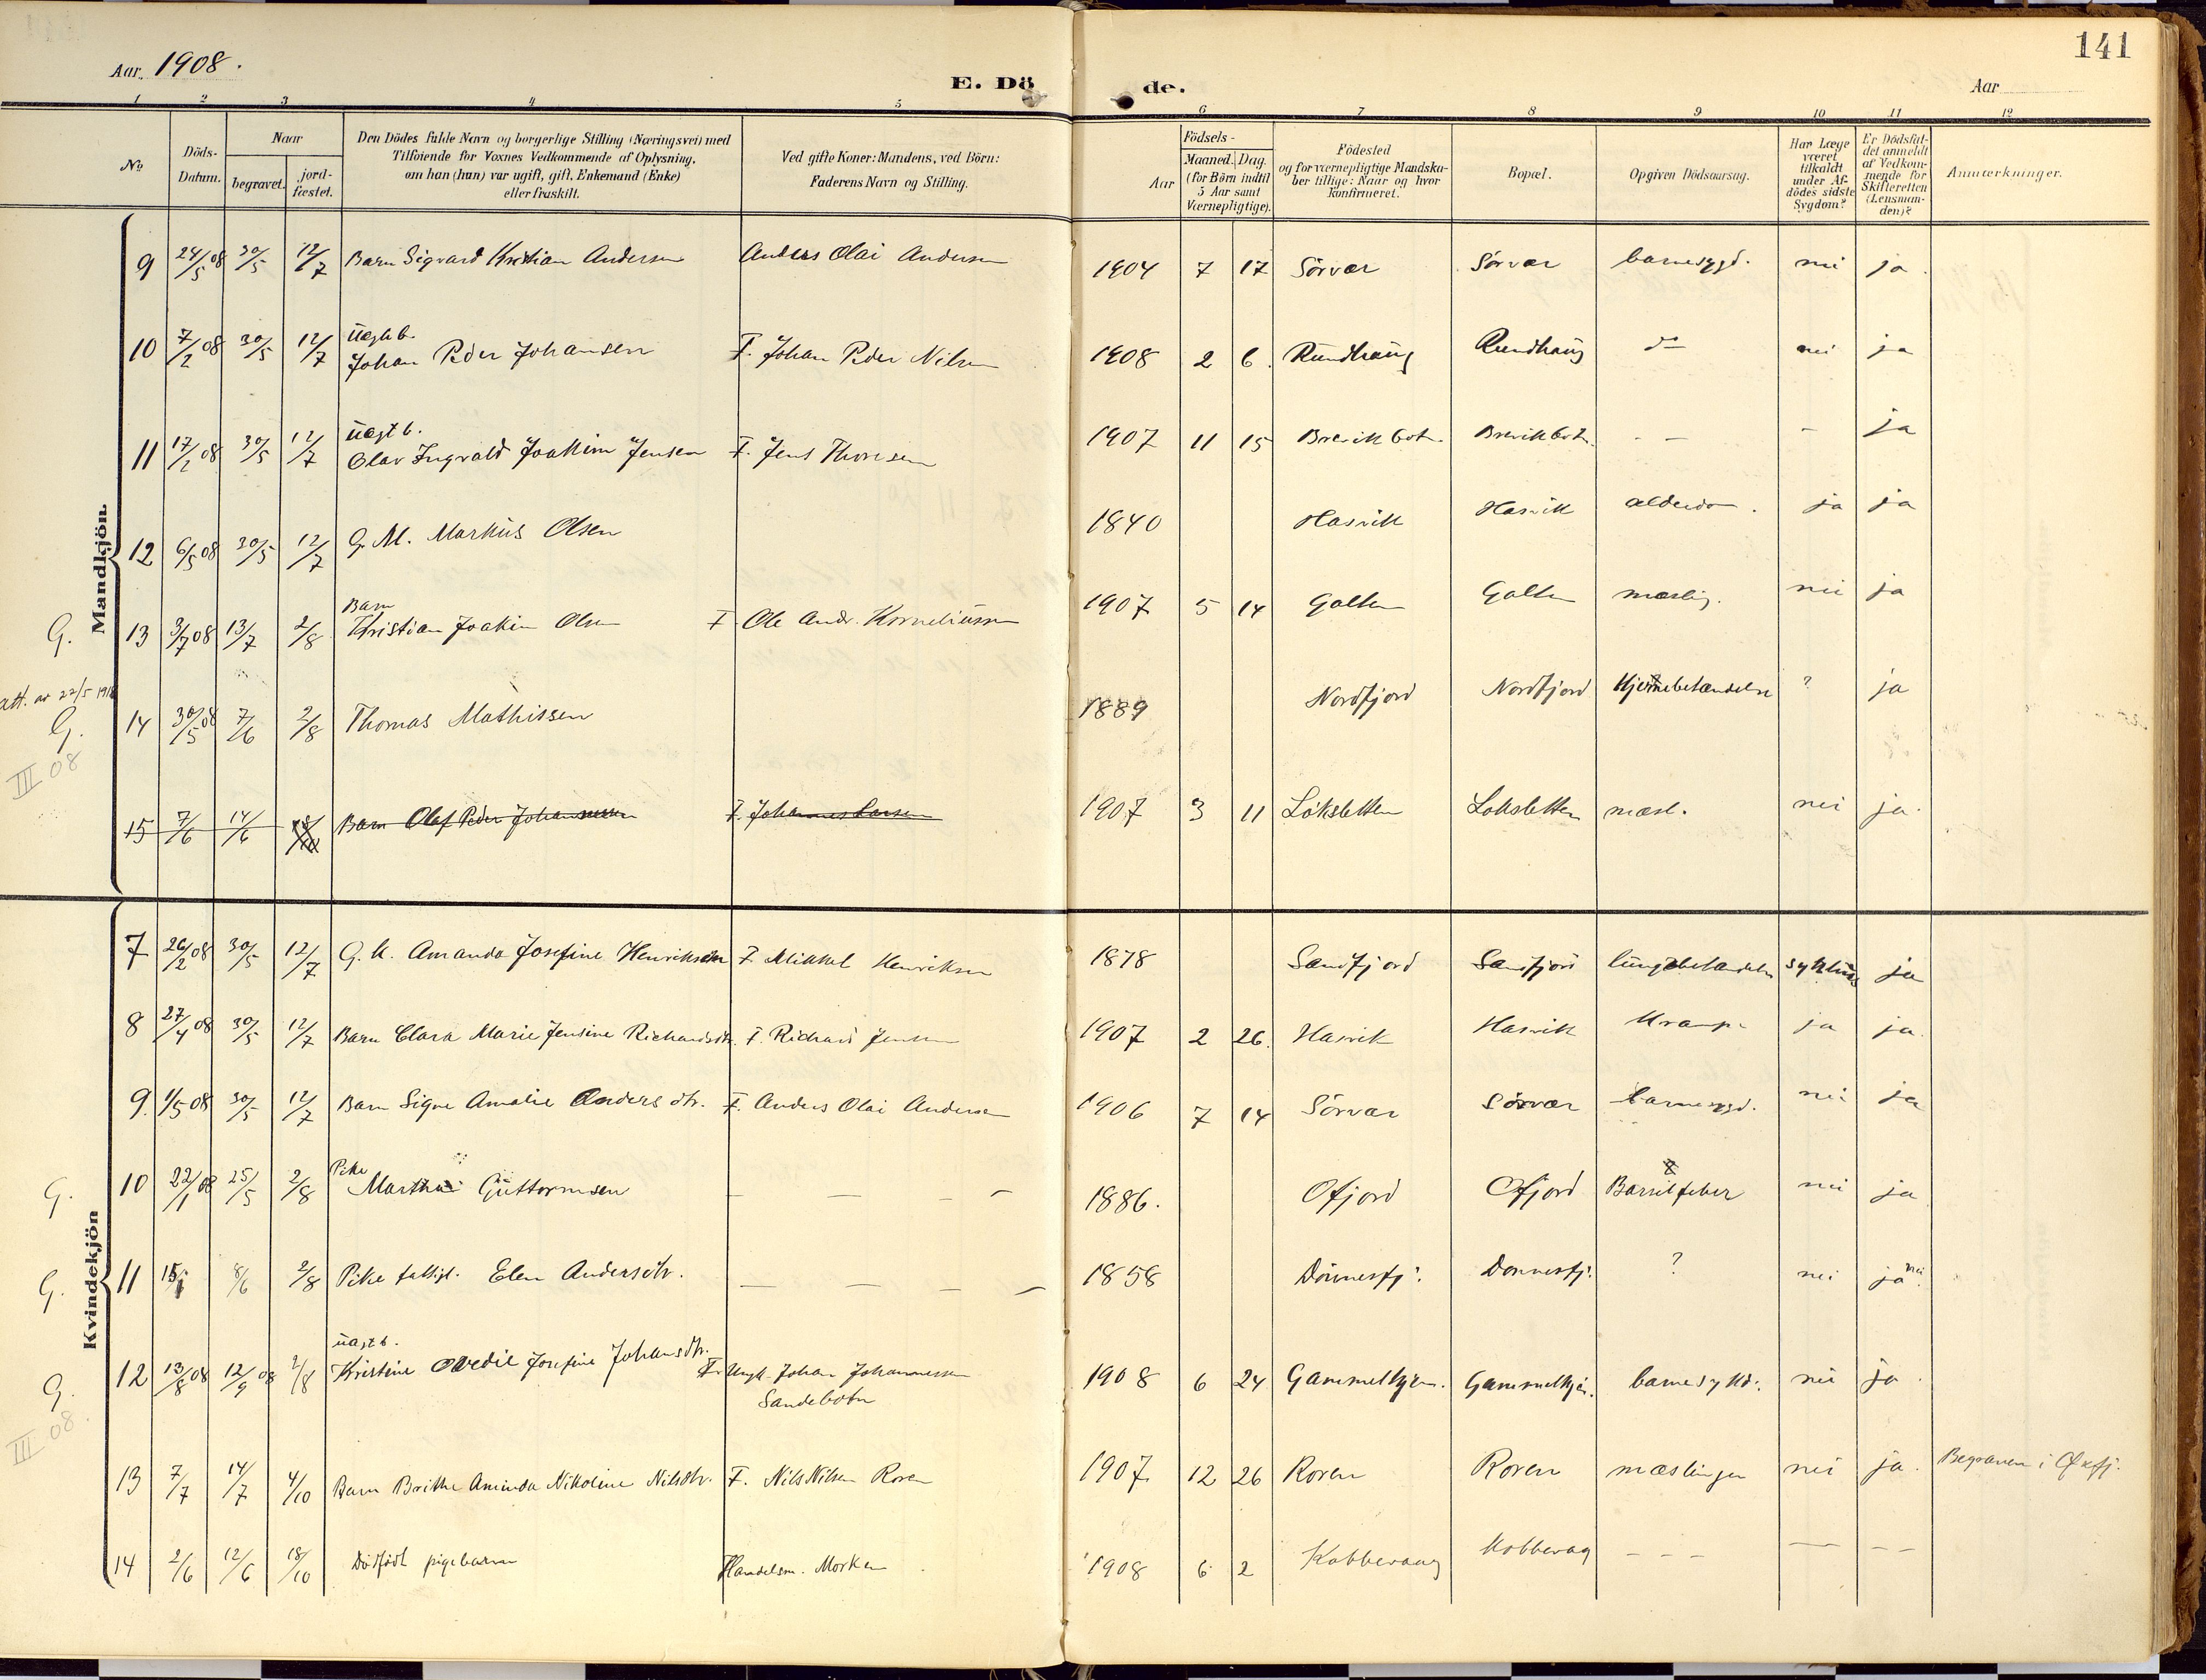 141
Aar. 1908.
E. Dö de.
Aar
1 2 3 4 5 6 7 8 9 10 11 12
No
Döds-Datum.
Naar
begravet.
jord-fæstet.
Den Dödes fulde Navn og borgerlige Stilling (Næringsvei) med
Tilföiende for Voxnes Vedkommende af Oplysning,
om han (hun) var ugift, gift, Enkemand (Enke)
eller fraskilt.
Ved gifte Koner: Mandens, ved Börn:
Faderens Navn og Stilling.
Födsels-
Aar
Maaned. Dag.
(for Börn indtil
5 Aar samt
Værnepligtige).
Födested
og for værnepligtige Mandska-
ber tillige: Naar og hvor
konfirmeret.
Bopæl.
Opgiven Dödsaarsag.
Har Læge
været
tilkaldt
under Af-
dödes sidste
Sygdom?
Er Dödsfal-
det anmeldt
af Vedkom-
mende for
Skifteretten
(Lensman-
den)?
Anmærkninger.
Mandkjön.
9 24/5 08 30/5 12/7 Barn Sigvard Kristian Andersen Anders Olai Andersen 1904 7 17 Sörvær Sörvær barnesygd. nei ja.
uægte b.
10 7/2 08 30/5 12/7 Johan Peder Johansen F. Johan Peder Nilsen 1908 2 6. Rundhaug Rundhaug do nei ja
uægt b.
11 17/2 08 30/5 12/7 Olav Ingvald Joakim Jensen F. Jens Thoresen 1907 11 15 Brevikbotn. Brevikbotn. - - - ja
12 6/5 08 30/5 12/7 G. M. Markus Olsen 1840 Hasvik Hasvik alderdom. ja ja
Barn
G. 13 3/7 08 13/7 2/8 Kristian Joakim Olsen F Ole Andr. Korneliussen 1907 5 14 Galten Galten mæsling. nei ja
att. av 22/5 1918
G. 14 30/5 08 7/6 2/8 Thomas Mathissen 1889 Nordfjord Nordfjord Hjernebetændelse ? ja
III 08
15 7/6 14/6 Barn Olaf Peder Johannessen F. Johannes Larsen 1907 3 11 Löksletten Loksletten mæsl. nei ja.
Kvindekjön
7 26/2 08 30/5 12/7 G. K. Amanda Josefine Henriksen F Mikkel Henriksen 1878 Sandfjord Sandfjord lungebetændelse sykehus ja
8 27/4 08 30/5 12/7 Barn Clara Marie Jensine Richardsdtr. F. Richard Jensen 1907 2 26. Hasvik Hasvik Krampe ja ja.
9. 1/5 08 30/5 12/7 Barn Signe Amalie Andersdtr. F. Anders Olai Andersen 1906 7 14 Sörvær Sörvær barnesygd. nei ja
Pike
G. 10 22/1 08 25/5 2/8 Martha Guttormsen - - - - 1886. Ofjord Ofjord Barselfeber nei ja
G. 11 15/ 8/6 2/8 Pike fattigl. Elen Andersdtr. - - - - 1858 Dönnesfj. Donnesfj. ? nei ja nei.
uægt b.
G. 12 13/8 08 12/9 08 2/8 Kristine Ovedie Josefine Johansdtr. F. Ungk. Johan Johannessen 1908 6 24 Gammelhjem. Gammelhjem. barnesykd. nei ja.
Sandebotn
III 08.
13 7/7 14/7 4/10 Barn Brithe Aminda Nikoline Nilsdtr. F. Nils Nilsen Roren 1907. 12 26 Roren Roren mæslinger nei ja. Begraven i Øxfj.
14 2/6 12/6 18/10 Dödfödt pigebarn Handelsm. Morken 1908 6 2 Kobbevaag Kobbevag - - - - - -